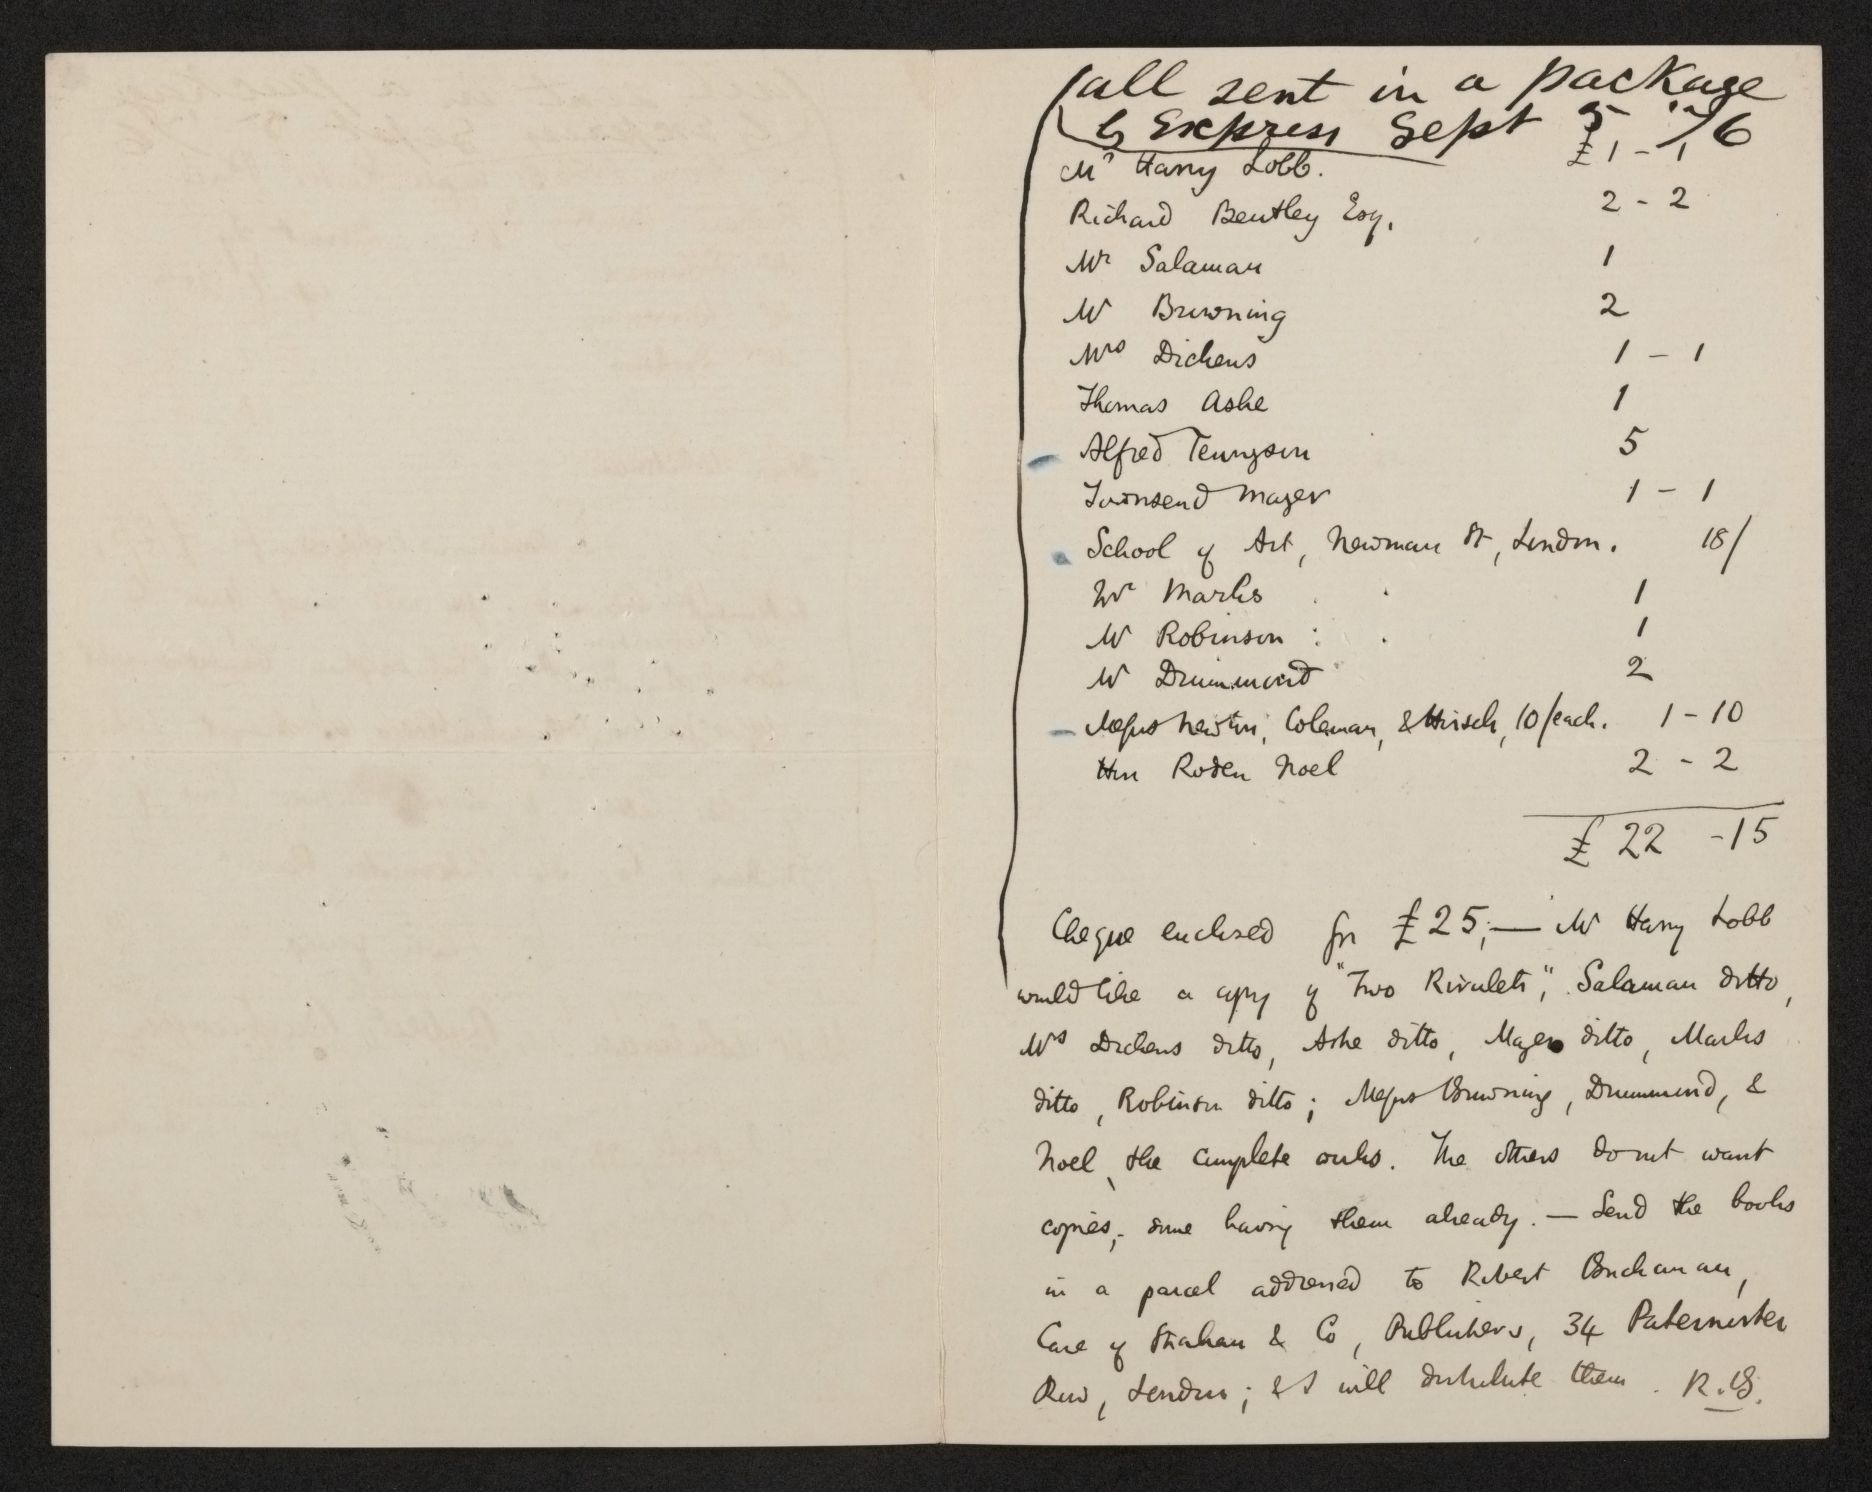 all sent in a package
by Express Sept 5 '76
Mr Harry Lobb. £1 - 1
Richard Bentley Esq. 2 - 2
Mr Salaman 1
Mr Browning 2
Mrs Dickens 1 - 1
Thomas Ashe 1
Alfred Tennyson 5
Townsend Mayer 1 - 1
School of Art, Newman St, London. 18/
Mr Marks 1
Mr Robinson 1
Mr Drummond 2
Messrs Newton, Coleman, & Hirsch, 10/each. 1 - 10
Hon Roden Noel 2 - 2
£ 22 - 15
Cheque enclosed for £25; — Mr Harry Lobb
would like a copy of "Two Rivulets", Salaman ditto,
Mrs Dickens ditto, Ashe ditto, Mayer ditto, Marks
ditto, Robinson ditto; Messrs Browning, Drummond, &
Noel, the complete works. The others do not want
copies, some having them already. — Send the books
in a parcel addressed to Robert Buchanan,
Care of Strahan & Co, Publishers, 34 Paternoster
Row, London; & I will distribute them. R.B.